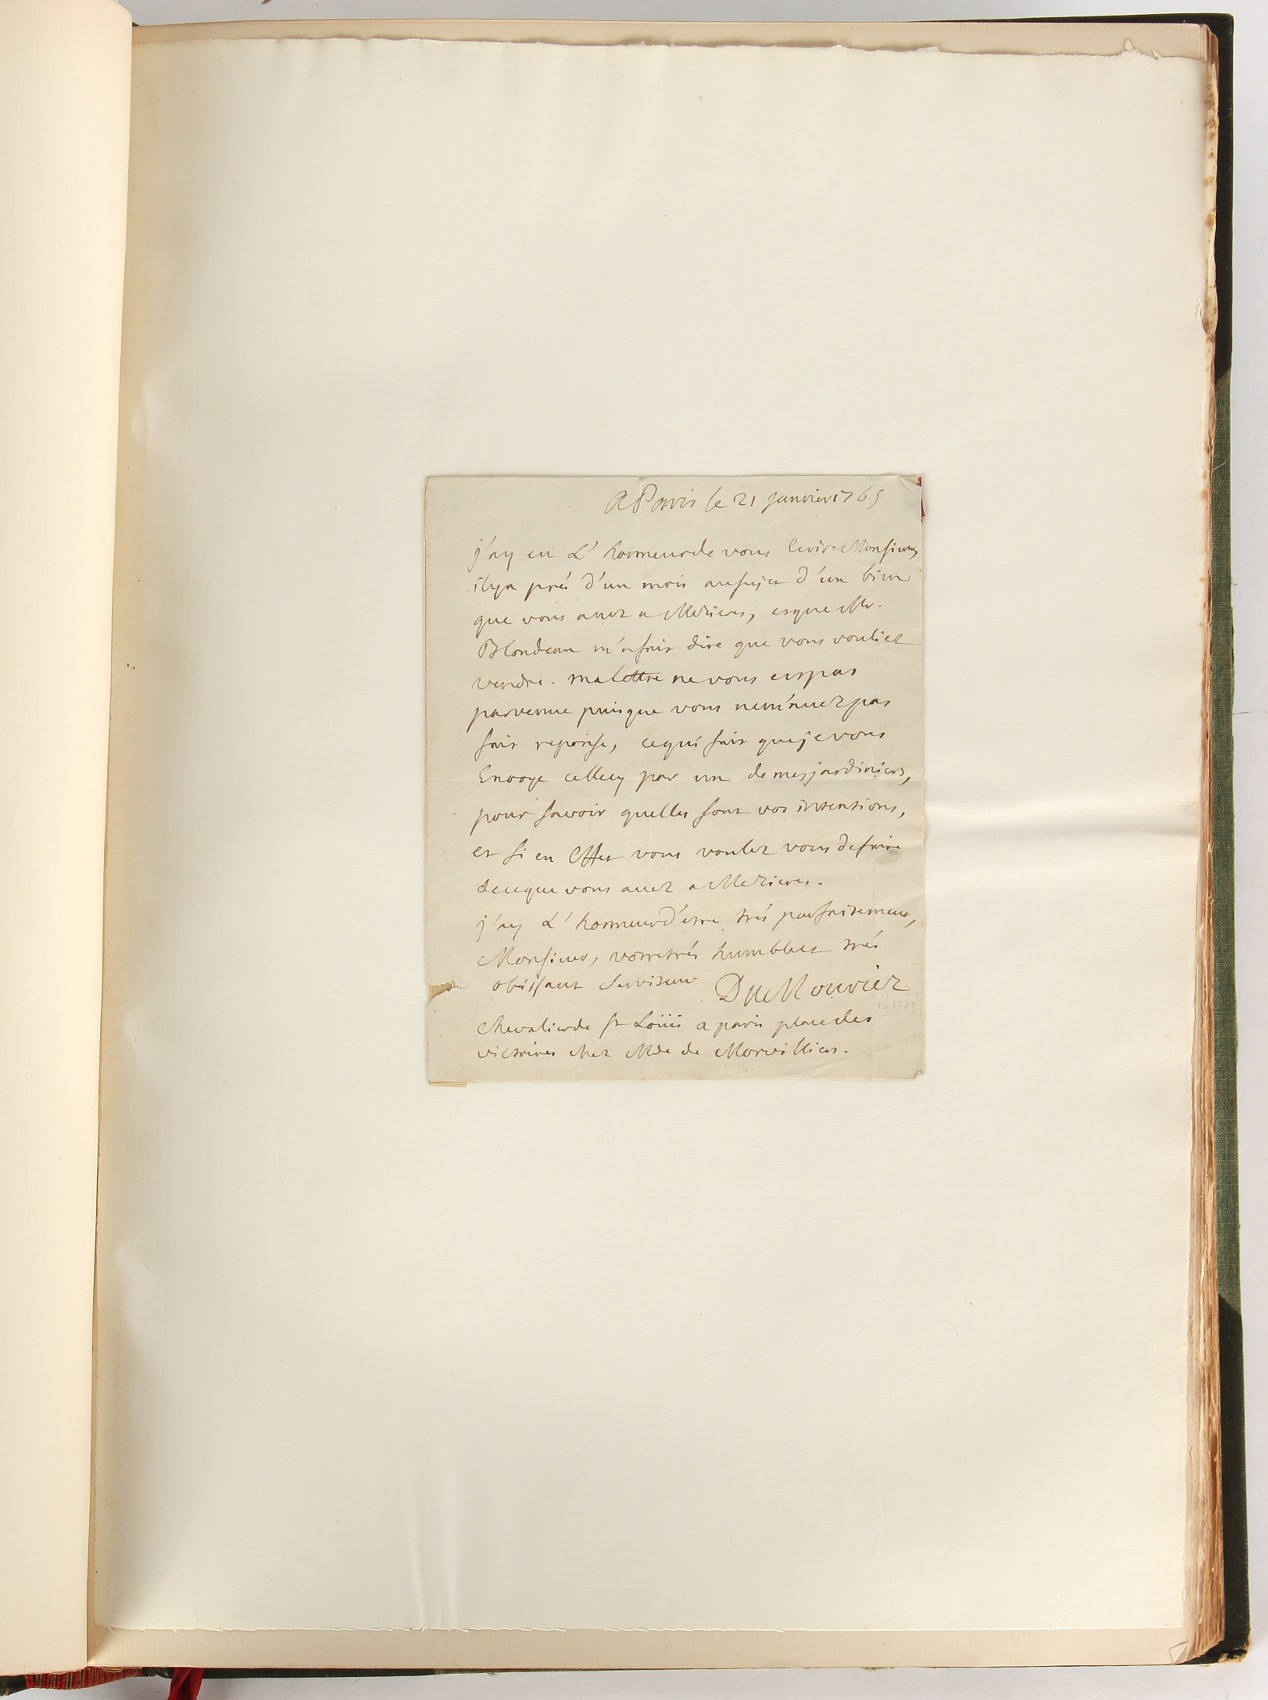 A Paris le 21 janvier 1765
j'ay eu L'honneur de vous Ecrire Monsieur
il y a prés d'un mois au sujet d'un bien
que vous avez a Mezieres, et que Mr.
Blondeau m'a fait dire que vous vouliez
vendre. ma lettre ne vous est pas
parvenue puisque vous ne m'avez pas
fait reponse, ce qui fait que je vous
Envoye celle cy par un de mes jardiniers,
pour savoir quelles sont vos intentions,
et si en Effet vous voulez vous defaire
de ce que vous avez a Mezieres.
j'ay L'honneur d'etre trés parfaitement,
Monsieur, votre trés humble et trés
obeissant Serviteur DuMouriez
Chevalier de st Loüis a paris place des
victoires chez Mde de Morvilliers.